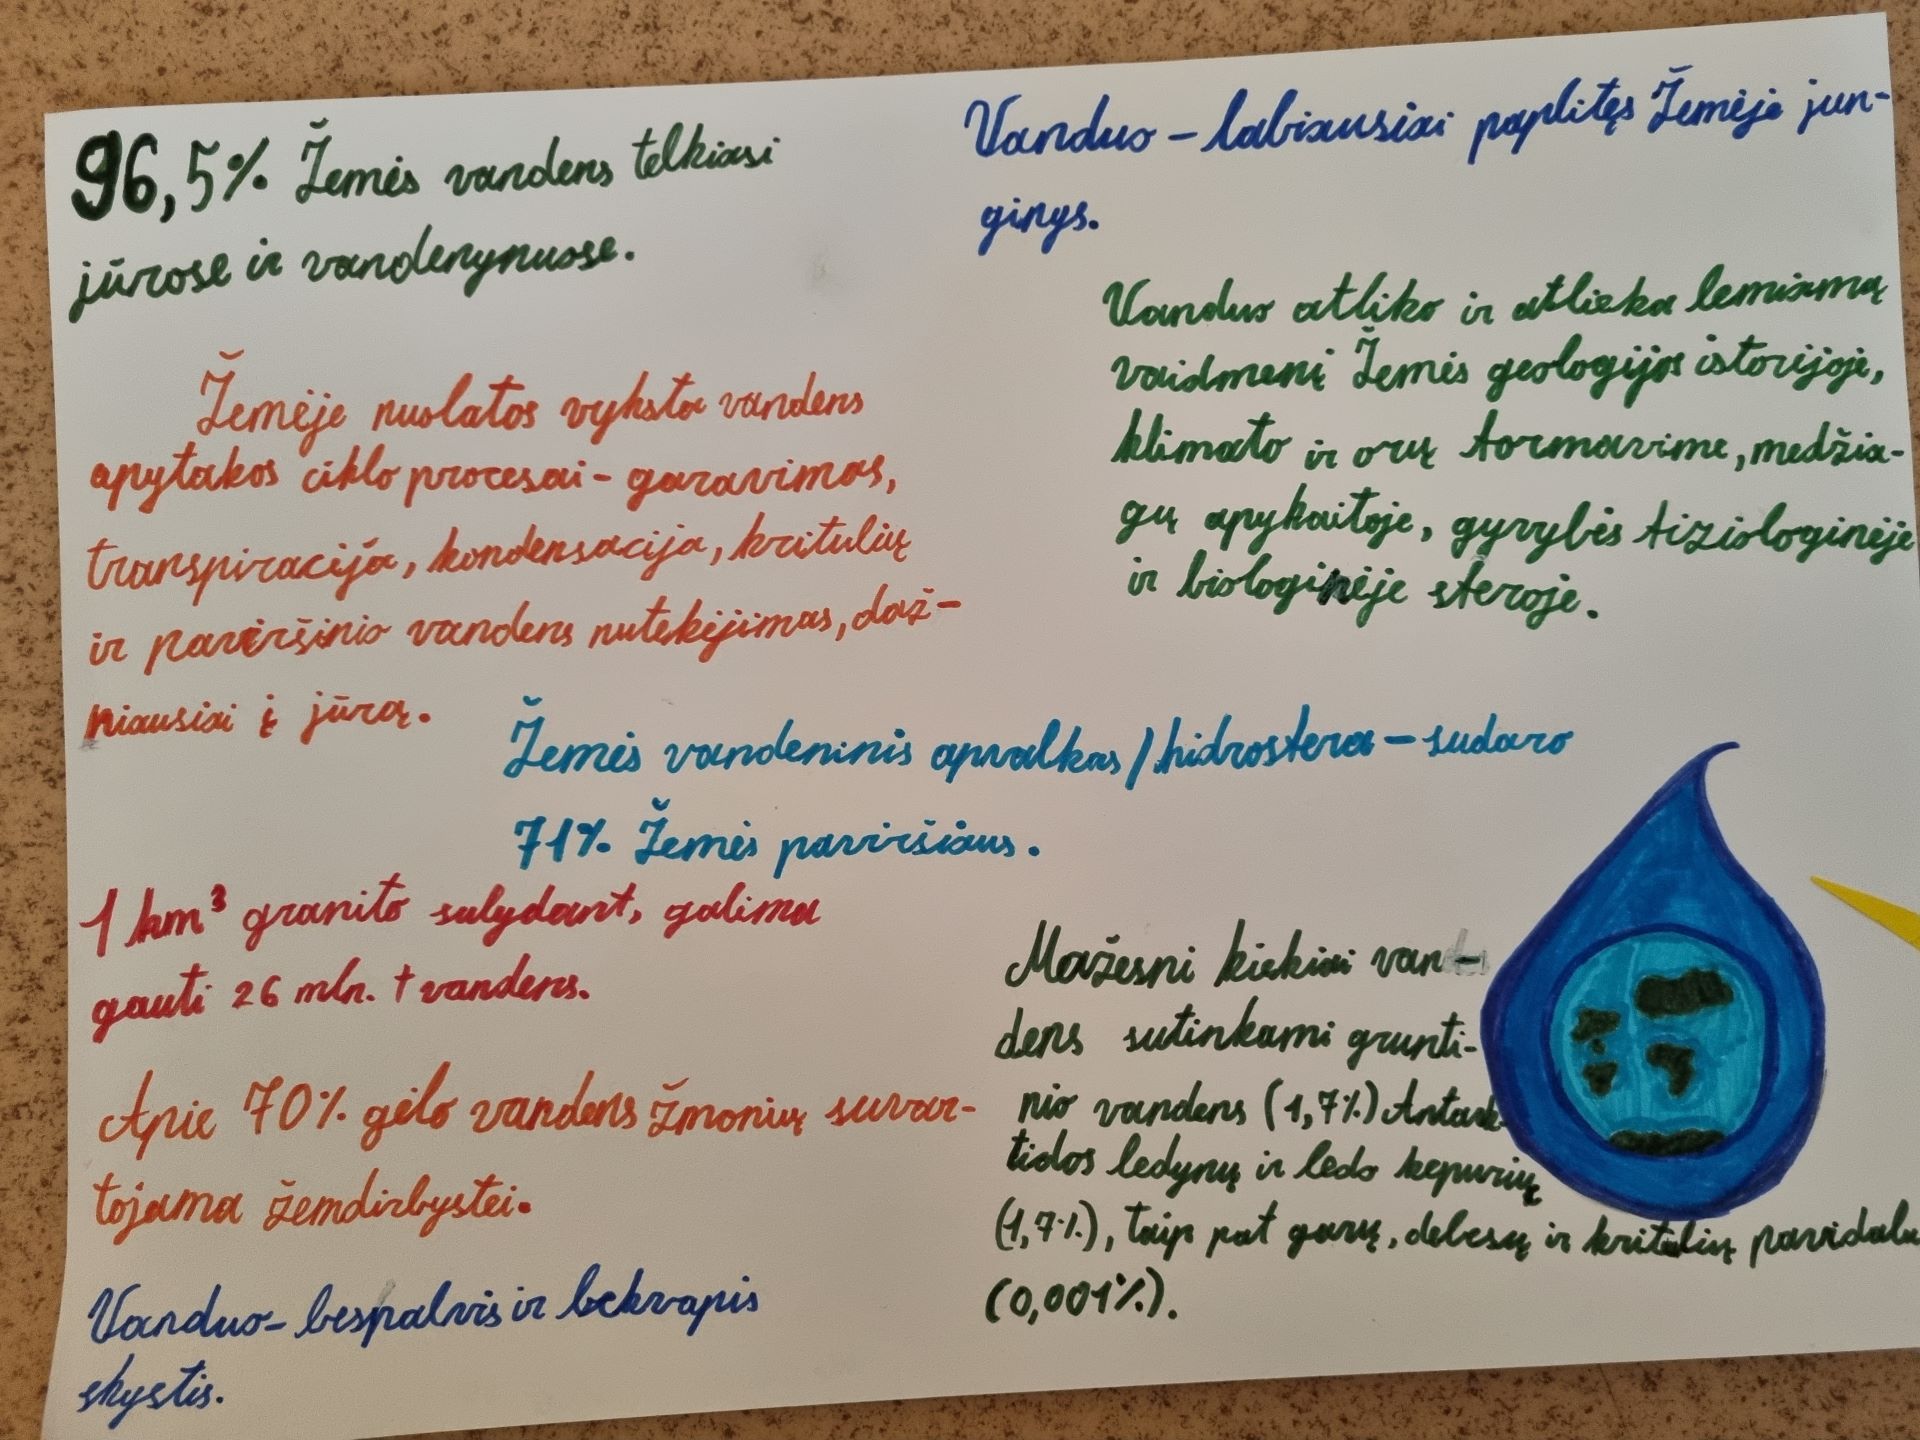 96,5% Žemės vandens telkiasi
jūrose ir vandenynuose.
Vanduo – labiausiai paplitęs Žemėje jun-
ginys.
Vanduo atliko ir atlieka lemiamą
vaidmenį Žemės geologijos istorijoje,
klimato ir orų formavime, medžia-
gų apykaitoje, gyvybės fiziologinėje
ir biologinėje sferoje.
Žemėje nuolatos vyksta vandens
apytakos ciklo procesai - garavimas,
transpiracija, kondensacija, kritulių
ir paviršinio vandens nutekėjimas, daž-
niausiai į jūrą.
Žemės vandeninis apvalkas/hidrosfera – sudaro
71% Žemės paviršiaus.
1 km³ granito sulydant, galima
gauti 26 mln. t vandens.
Apie 70% gėlo vandens žmonių suvar-
tojama žemdirbystei.
Vanduo - bespalvis ir bekvapis
skystis.
Mažesni kiekiai van-
dens sutinkami grunti-
nio vandens (1,7%) Antark-
tidos ledynų ir ledo kepurių
(1,7%), taip pat garų, debesų ir kritulių pavidalu
(0,001%).